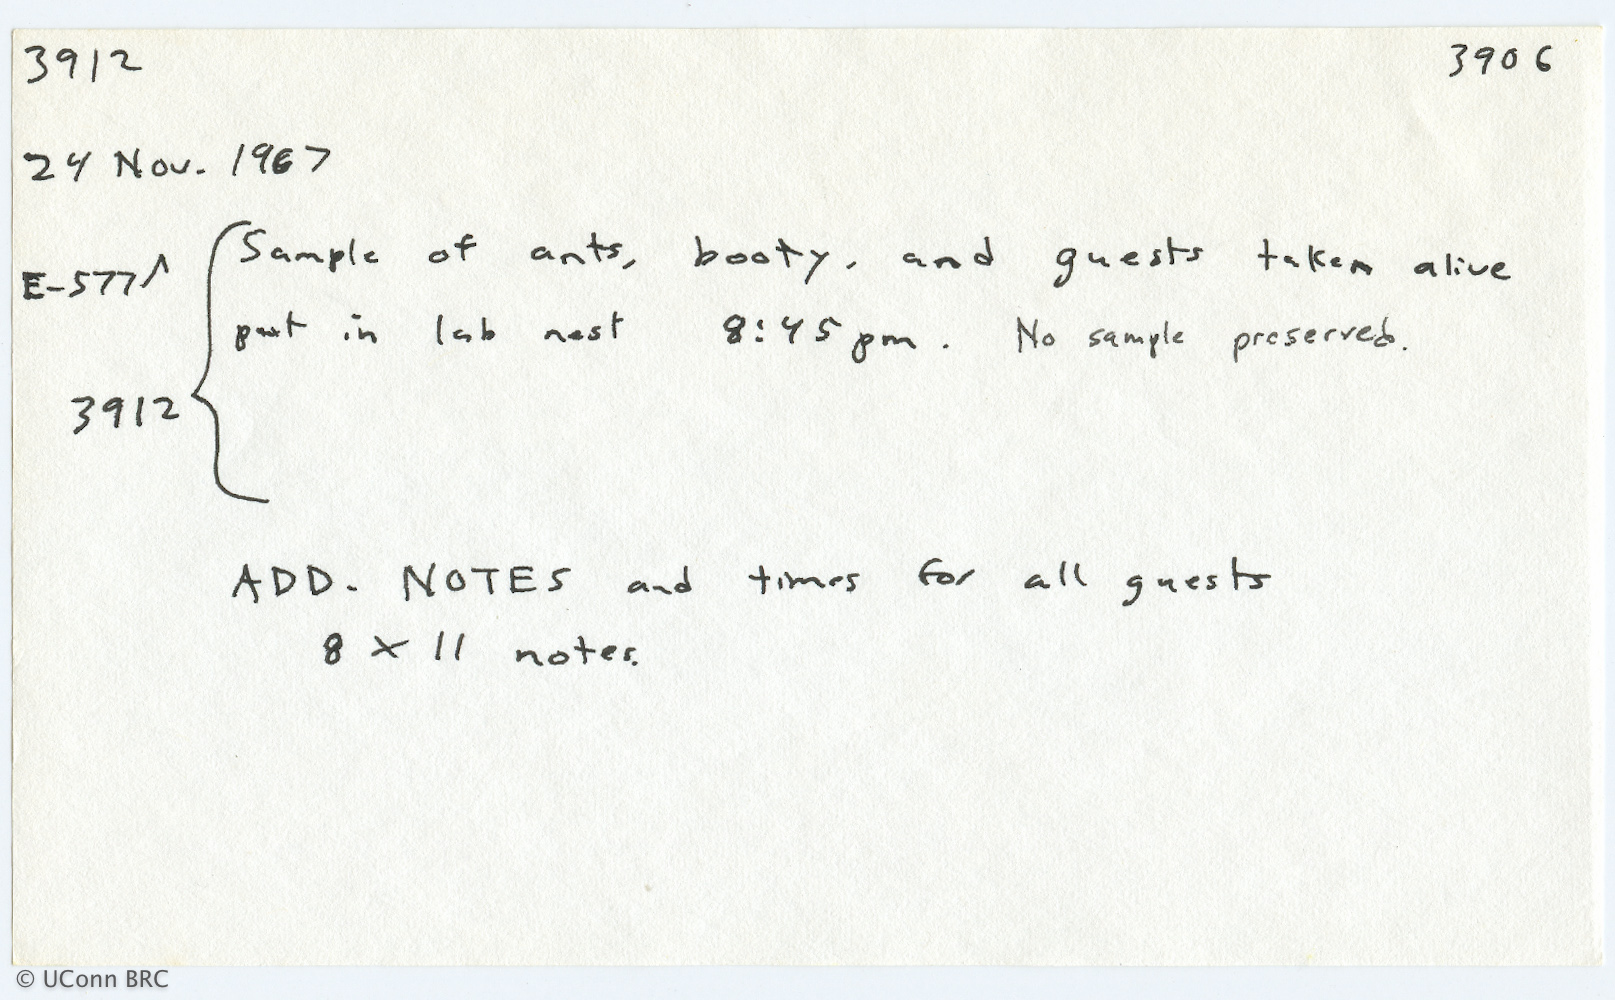 3912 3906
24 Nov. 1967
E-577^ Sample of ants, booty, and guests taken alive
put in lab nest 8:45 pm. No sample preserved.
3912
ADD. NOTES and times for all guests
8 x 11 notes.
© UConn BRC